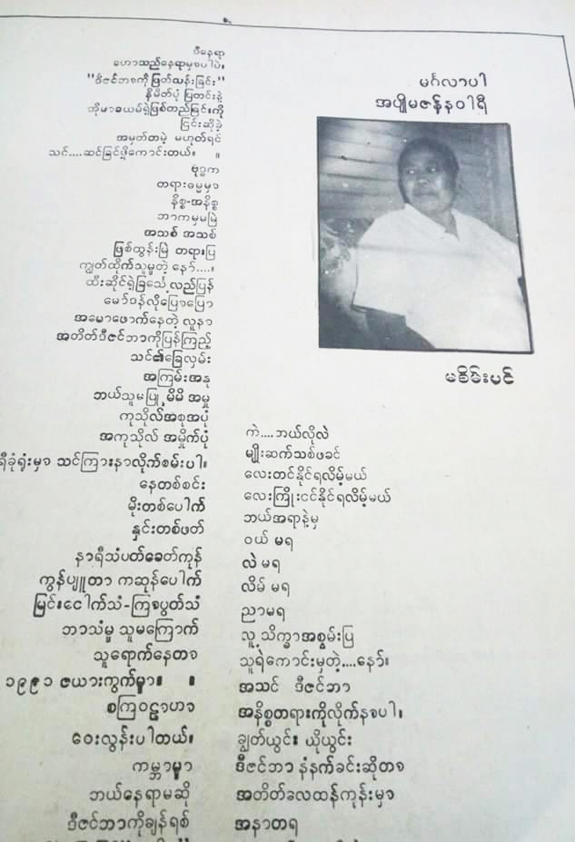 မင်္ဂလာပါ
အပျိုမဇန်နဝါရီ
မစိမ်းပင်
ဒီနေရာ
ဟောသည်နေရာမှစပါပဲ။
"ဒီဇင်ဘာကိုဖြတ်သန်းခြင်း"
နိမိတ်ပုံ ပြတင်းနဲ့
ဘိုမာဓယမ်ရွှဲဖြစ်တည်ခြင်းကို
ငြင်းဆိုခဲ့
အမှတ်တမဲ့ မဟုတ်ရင်
သင်....ဆင်ခြင်ဖို့ကောင်းတယ်။ ။
ဗုဒ္ဓက
တရားဓမ္မမှာ
နိစ္စ-အနိစ္စ
ဘာကမှမမြဲ
အသစ် အသစ်
ဖြစ်ထွန်းမြဲ တရားပြ
ကျွတ်ထိုက်သူမှတဲ့ နော်....။
ထီးဆိုင်ရှဲ့ခြသေ့်လည်ပြန်
မော်ဒန်လိုပြောပြော
အမောဖောက်နေတဲ့ လူနာ
အတိတ်ဒီဇင်ဘာကိုပြန်ကြည့်
သင်၏ခြေလှမ်း
အကြမ်းအနု
ဘယ်သူမပြု မိမိ အမှု
ကုသိုလ်အစုအပုံ
အကုသိုလ် အမှိုက်ပုံ
ရီခုံရုံးမှာ သင်ကြားနာလိုက်စမ်းပါ။
နေတစ်စင်း
မိုးတစ်ပေါက်
နှင်းတစ်ဖတ်
နာရီသံပတ်ခေတ်ကုန်
ကွန်ပျူတာ ကဆုန်ပေါက်
မြင်းငေါက်သံ-ကြာပွတ်သံ
ဘာသံမှ သူမကြောက်
သူရောက်နေတာ
၁၉၉၁ ဇယားကွက်မှာ။ ။
စကြဝဠာဟာ
ဝေးလွန်းပါတယ်။
ကမ္ဘာမှာ
ဘယ်နေရာမဆို
ဒီဇင်ဘာကိုချန်ရစ်
ကဲ....ဘယ်လိုလဲ
မျိုးဆက်သစ်ဖခင်
လေးတင်နိုင်ရလိမ့်မယ်
လေးကြိုးငင်နိုင်ရလိမ့်မယ်
ဘယ်အရာနဲ့မှ
ဝယ် မရ
လဲ မရ
လိမ် မရ
ညာမရ
လူ့ သိက္ခာအစွမ်းပြ
သူရဲကောင်းမှတဲ့....နော်။
အသင် ဒီဇင်ဘာ
အနိစ္စတရားကိုလိုက်နာပါ။
ချွတ်ယွင်း ယိုယွင်း
ဒီဇင်ဘာ နံနက်ခင်းဆိုတာ
အတိတ်ခလထန်ကုန်းမှာ
အနာတရ